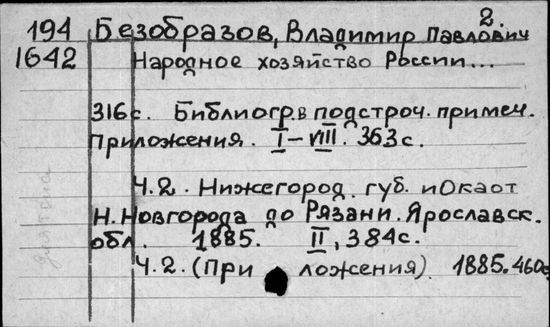 2.
194 Безобразов, Владимир Павлович
1642 Народное хозяйство России...
316с. Библиогр. в подстроч. примеч.
Приложения. I-VIII. 363с.
Ч.2. Нижегород. губ. и Окаот
Н.Новгорода до Рязани. Ярославск.
обл. 1885. II, 384с.
Ч.2. (Приложения) 1885. 460с